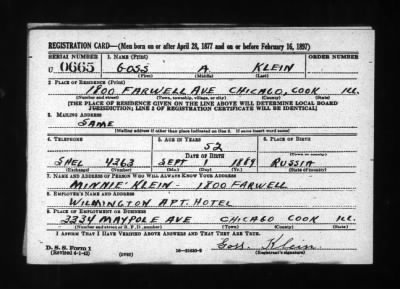 REGISTRATION CARD—(Men born on or after April 28, 1877 and on or before February 16, 1897)
SERIAL NUMBER 1. NAME (Print) ORDER NUMBER
U 0665 GOSS A KLEIN
(First) (Middle) (Last)
2. PLACE OF RESIDENCE (Print)
1800 FARWELL AVE CHICAGO, COOK ILL.
(Number and street) (Town, township, village, or city) (County) (State)
[THE PLACE OF RESIDENCE GIVEN ON THE LINE ABOVE WILL DETERMINE LOCAL BOARD
JURISDICTION; LINE 2 OF REGISTRATION CERTIFICATE WILL BE IDENTICAL]
3. MAILING ADDRESS
SAME
[Mailing address if other than place indicated on line 2. If same insert word same]
4. TELEPHONE 5. AGE IN YEARS 6. PLACE OF BIRTH
52
DATE OF BIRTH (Town or county)
SHEL 4363 SEPT 1 1889 RUSSIA
(Exchange) (Number) (Mo.) (Day) (Yr.) (State or country)
7. NAME AND ADDRESS OF PERSON WHO WILL ALWAYS KNOW YOUR ADDRESS
MINNIE KLEIN - 1800 FARWELL
8. EMPLOYER'S NAME AND ADDRESS
WILMINGTON APT. HOTEL
9. PLACE OF EMPLOYMENT OR BUSINESS
3334 MAYPOLE AVE CHICAGO COOK ILL.
(Number and street or R. F. D. number) (Town) (County) (State)
I AFFIRM THAT I HAVE VERIFIED ABOVE ANSWERS AND THAT THEY ARE TRUE.
D. S. S. Form 1
(Revised 4-1-42) (over) Goss. Klein
(Registrant's signature)